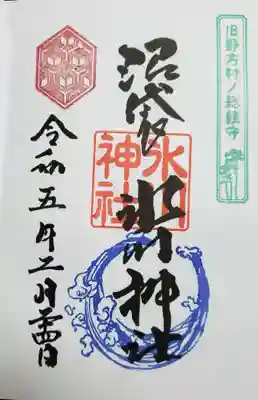 旧野方村ノ総鎮守
沼袋
氷川神社
氷川神社
令和五年二月雪日